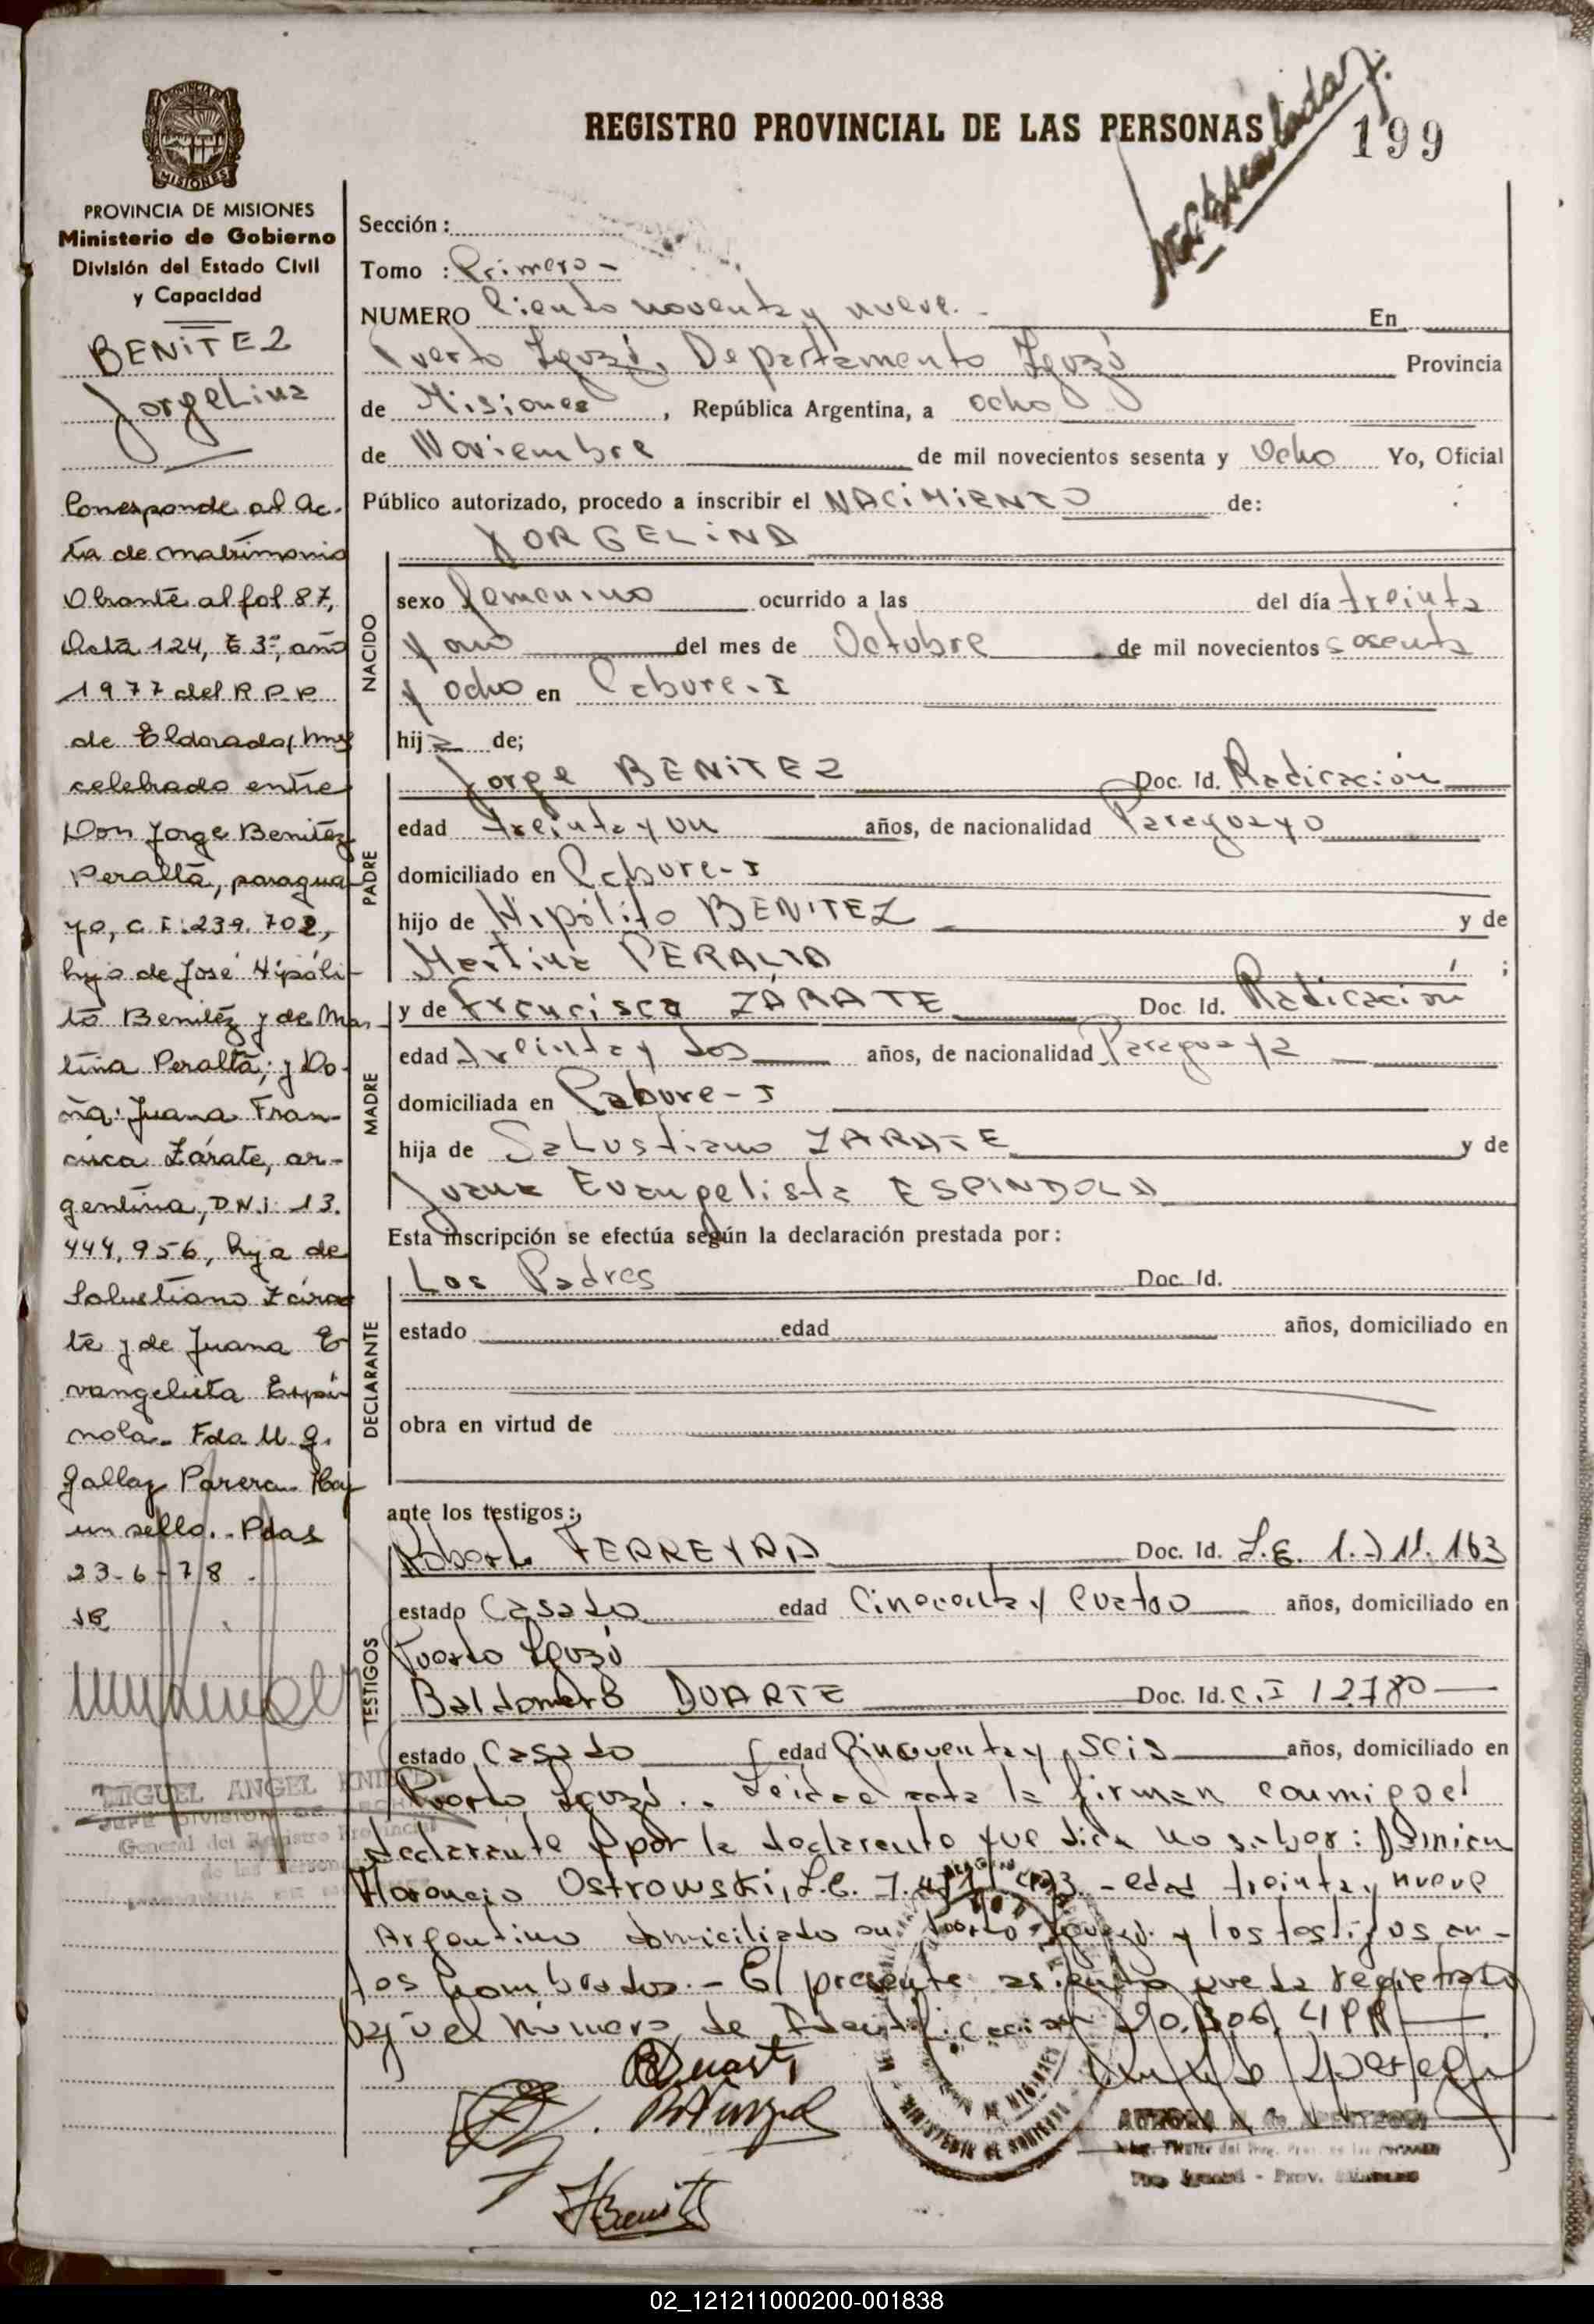 REGISTRO PROVINCIAL DE LAS PERSONAS
199
MISIONES
PROVINCIA DE MISIONES
Ministerio de Gobierno
División del Estado Civil
y Capacidad
BENITEZ
Jorgelina
Corresponde al Ac-
ta de matrimonio
Obrante al fol 87,
Acta 124, T 3º, año
1977 del R.P.P.
de Eldorado, Mnes
celebrado entre
Don Jorge Benitez
Peralta, paragua-
yo, C.I: 239.702,
hijo de José Hipóli-
to Benitéz y de Mar-
tina Peralta; y Do-
ña: Juana Fran-
cisca Zárate, ar-
gentina, D.N.i: 13.
444.956, hija de
Salustiano Zára-
te y de Juana E-
vangelista Espí-
nola. Fda M. G.
Gallaz Parera. Hay
un sello. Pdas
23-6-78.
MIGUEL ANGEL
JEFE DIVISION
General del Registro Provincial
de las Personas
Sección:
Tomo : Primero -
NUMERO Ciento noventa y nueve. - En
Puerto Iguazú, Departamento Iguazú Provincia
de Misiones, República Argentina, a ocho
de Noviembre de mil novecientos sesenta y Ocho Yo, Oficial
Público autorizado, procedo a inscribir el NACiMiENTO de:
JORGELINA
NACIDO
sexo femenino ocurrido a las del día treinta
y uno del mes de Octubre de mil novecientos sesenta
y ocho en Cabure-I
hija de;
PADRE
Jorge BENiTEZ Doc. Id. Radicación
edad treinta y un años, de nacionalidad Paraguayo
domiciliado en Cabure-I
hijo de Hipólito BENITEZ y de
Martina PERALTA ;
MADRE
y de Francisca ZÁRATE Doc. Id. Radicación
edad treinta y dos años, de nacionalidad Paraguaya
domiciliada en Cabure-I
hija de Salustiano ZARATE y de
Juana Evangelista ESPINDOLA
Esta inscripción se efectúa según la declaración prestada por:
DECLARANTE
Los Padres Doc. Id.
estado edad años, domiciliado en
obra en virtud de
ante los testigos:
TESTIGOS
Roberto FERREYRA Doc. Id. L.E. 1.711.163
estado Casado edad Cincuenta y cuatro años, domiciliado en
Puerto Iguazú
Baldomero DUARTE Doc. Id. C.I 12780
estado Casado edad Cincuenta y seis años, domiciliado en
Puerto Iguazú.. Leida el acta la firman conmigo el
declarante y por la declarante que dice no saber:
Florencio Ostrowski, L.E. 7. - edad treinta y nueve
Argentino domiciliado en Puerto Iguazú y los testigos an-
tes nombrados.- El presente asiento queda registrado
bajo el número de Identificación 20.306.499
MINISTERIO DE GOBIERNO
AURORA
Prov. Misiones
02_121211000200-001838